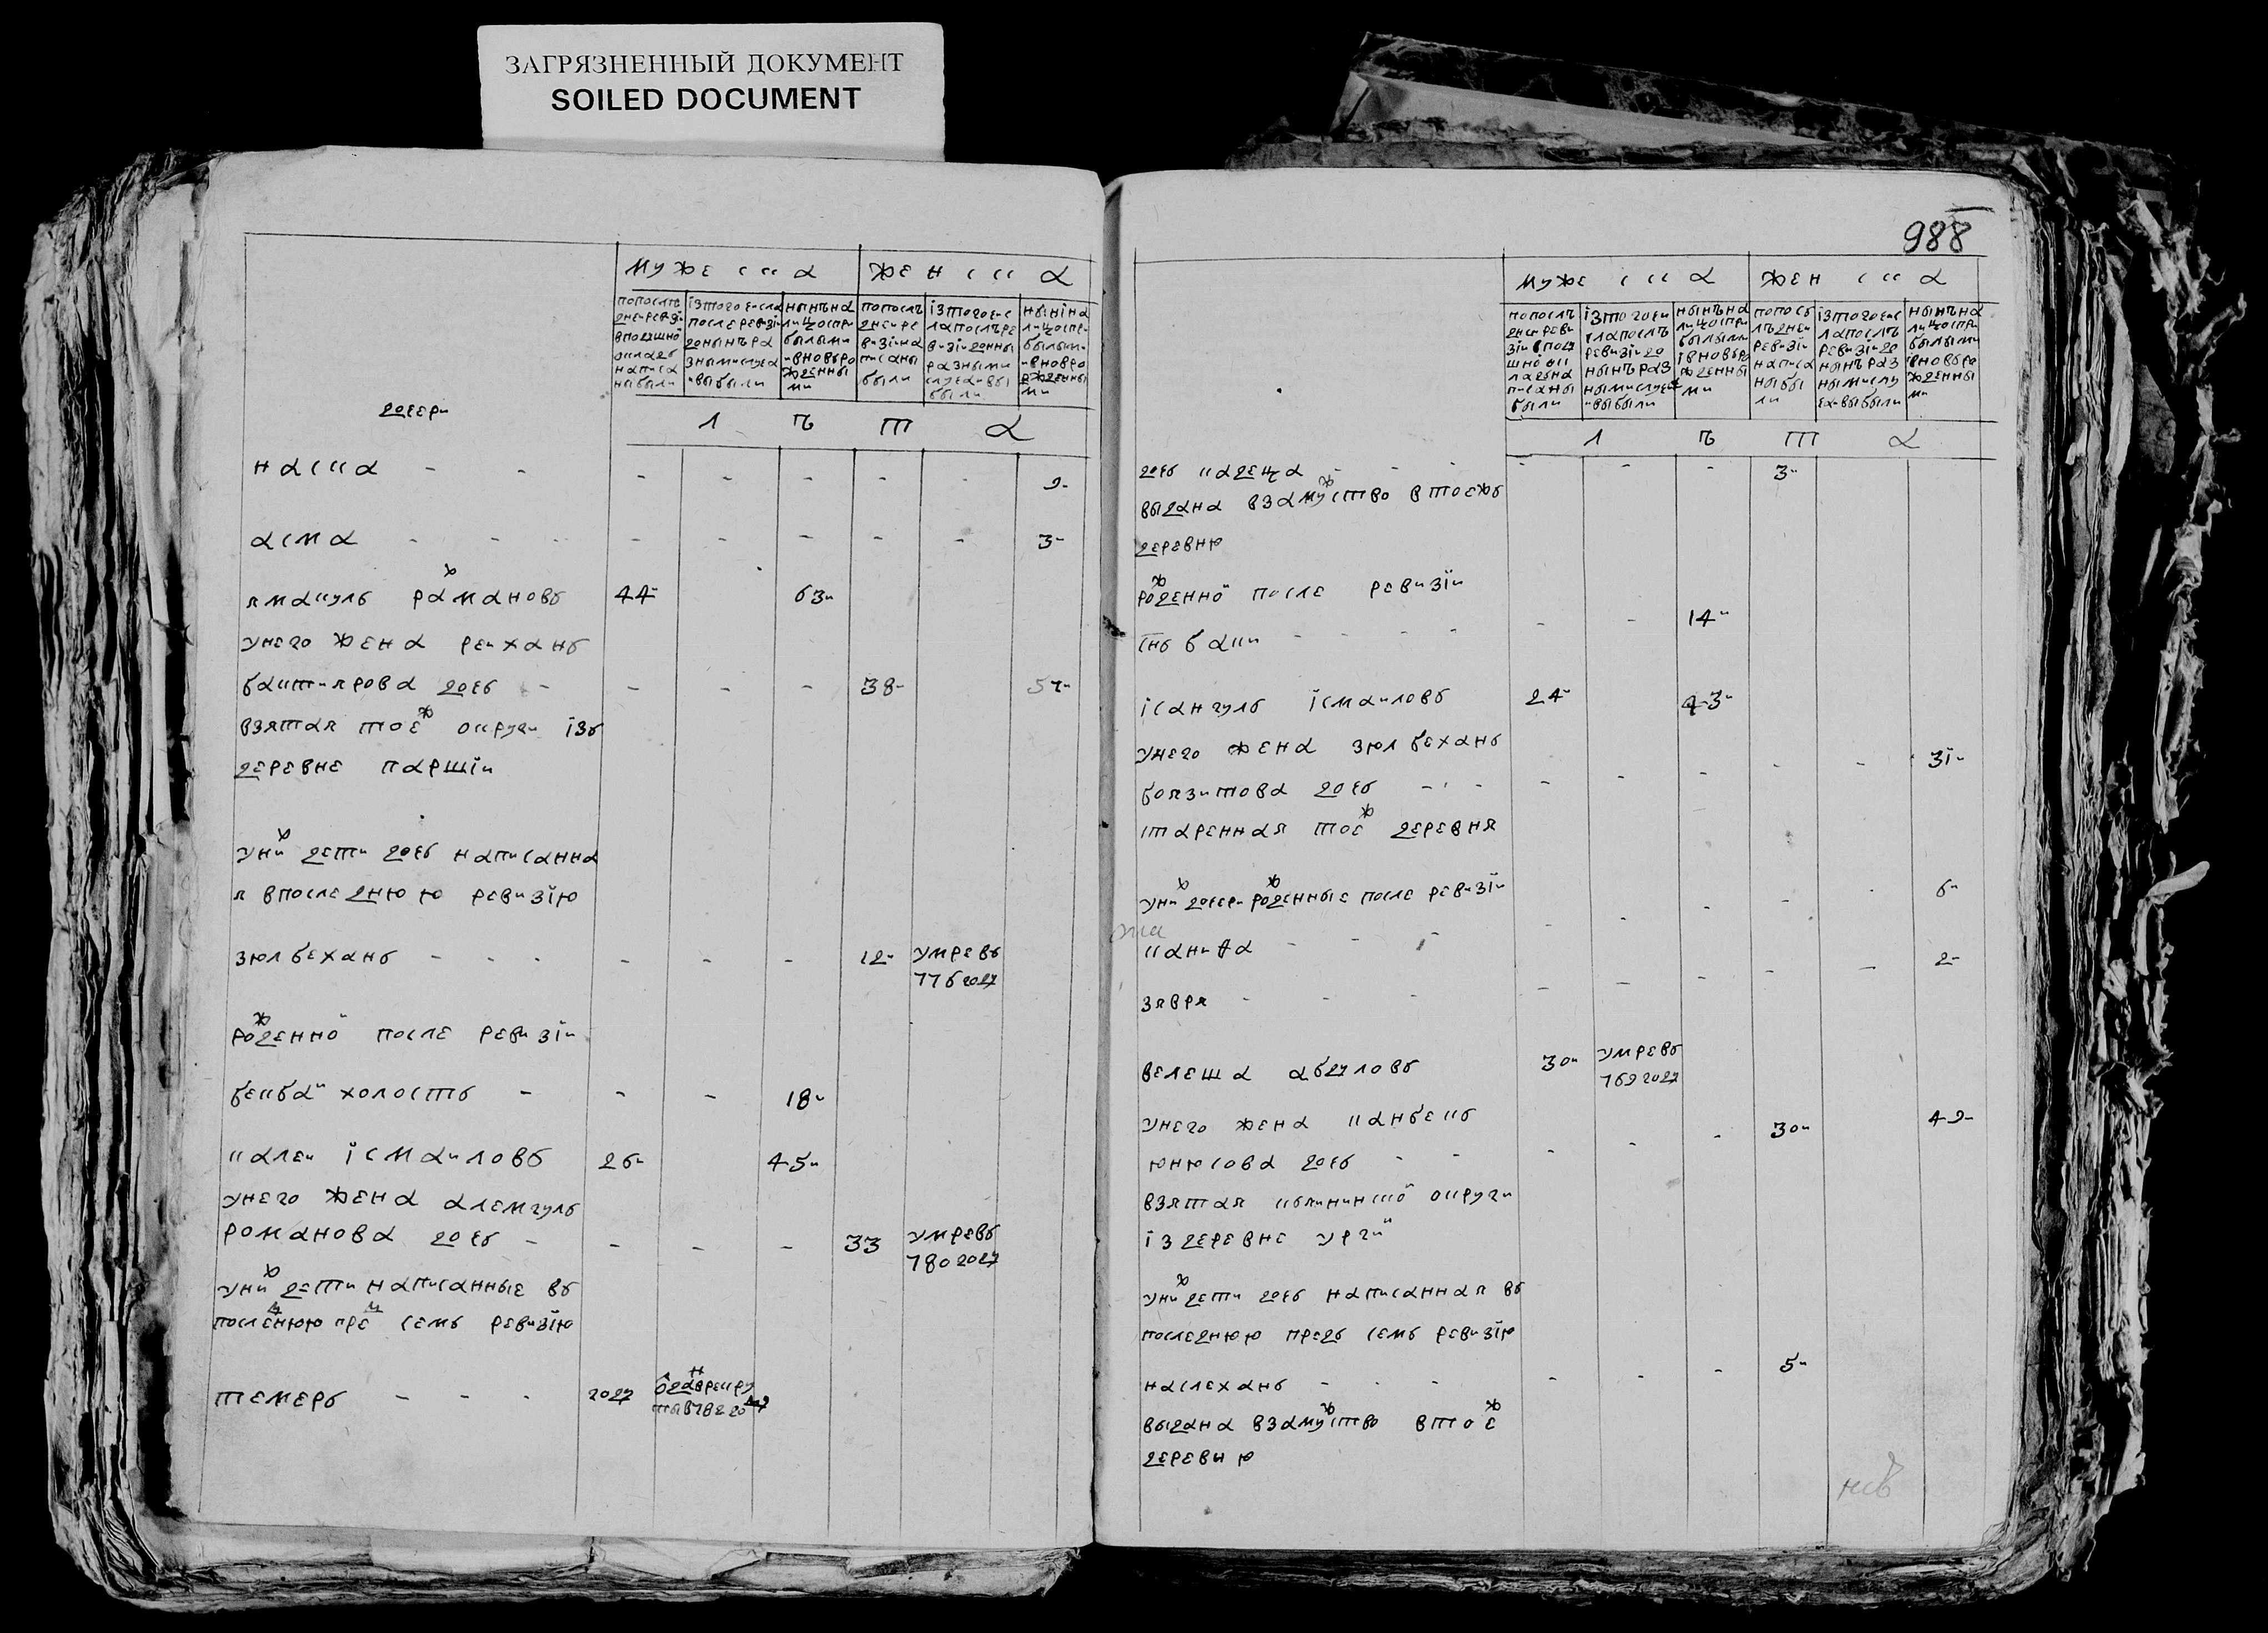 ЗАГРЯЗНЕННЫЙ ДОКУМЕНТ
SOILED DOCUMENT
988
дочери
мужеска женска
попоследнеи ревизи вподушно окладе написаны были
ізтого числа после ревизи доныне разными случеа выбыли
ныне налицо спрыбылыми и вновь рожденными
попоследнеи ревизии написаны были
ізтого числа после ревизіи доныне разными случеи выбыли
ныне налицо спрыбылыми и вновь рожденными
лѣта
наска - - - - - - - 9-
асма - - - - - - - - 3-
ямакуль рахмановъ 44 63
унего жена реиханъ
баштирова дочь - - - - 38 57
взятая тоеж округи ізъ
деревне паршіи
уних дети дочь написанна
я впоследнюю ревизію
зюлбеханъ - - - - - - 12 умре въ 776 году
рожденной после ревизіи
бекбаи холостъ - - - 18
калеи ісмаиловъ 26 45
унего жена алемгулъ
романова дочь - - - - 33 умре въ 780 году
уних дети написанные въ
последнюю пред семъ ревизію
темеръ - - - году
488
мужеска женска
попоследнеи ревизіи в подушно окладе написаны были
ізтого числа после ревизіи доныне разными случеи выбыли
ныне налицо спрыбылыми і вновь рожденными
попоследнеи ревизіи написаны были
ізтого числа после ревизіи доныне разными случеи выбыли
ныне налицо спрыбылыми і вновь рожденными
лѣта
дочь кадеца - - - - - - 3
выдана взамужство втоежъ
деревню
рожденной после ревизіи
інъбаки - - - - - - 14
ісангулъ ісмаиловъ 24 43
унего жена зюлбеханъ
боязитова дочь - - - - - - - - 31
старенная тоеж деревня
уних дочери рожденные после ревизіи
канифа - - - - - - - - 6
зявря - - - - - - - - 2
велеша абдуловъ 30 умре въ 769 году
унего жена канбекъ
юнюсова дочь - - - - - 30 49
взятая округи
із деревне ургіи
уних дети дочь написанная въ
последнюю предъ семъ ревизію
наслеханъ - - - - - - 5
выдана взамужство втоеж
деревню